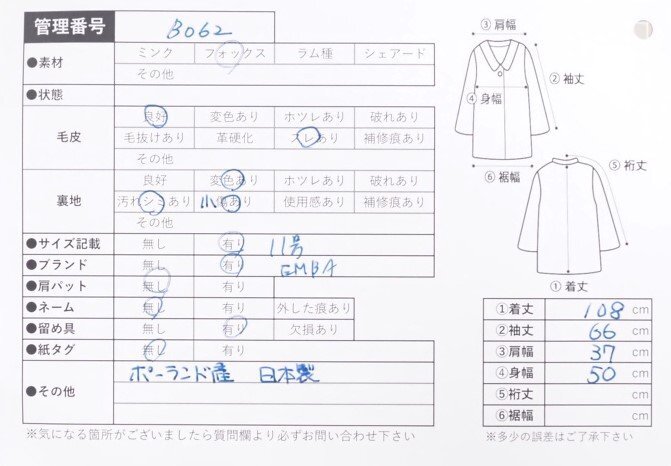 管理番号 B062
●素材 ミンク フォックス ラム種 シェアード
その他
●状態
毛皮 良好 変色あり ホツレあり 破れあり
毛抜けあり 革硬化 スレあり 補修痕あり
その他
裏地 良好 変色あり ホツレあり 破れあり
汚れシミあり 小傷あり 使用感あり 補修痕あり
その他
●サイズ記載 無し 有り 11号
●ブランド 無し 有り EMBA
●肩パット 無し 有り
●ネーム 無し 有り 外した痕あり
●留め具 無し 有り 欠損あり
●紙タグ 無し 有り
●その他 ポーランド産 日本製
※気になる箇所がございましたら質問欄より必ずお問い合わせ下さい
③肩幅
②袖丈
④身幅
⑥裾幅
⑤裄丈
①着丈
①着丈 108 cm
②袖丈 66 cm
③肩幅 37 cm
④身幅 50 cm
⑤裄丈 cm
⑥裾幅 cm
※多少の誤差はご了承下さい